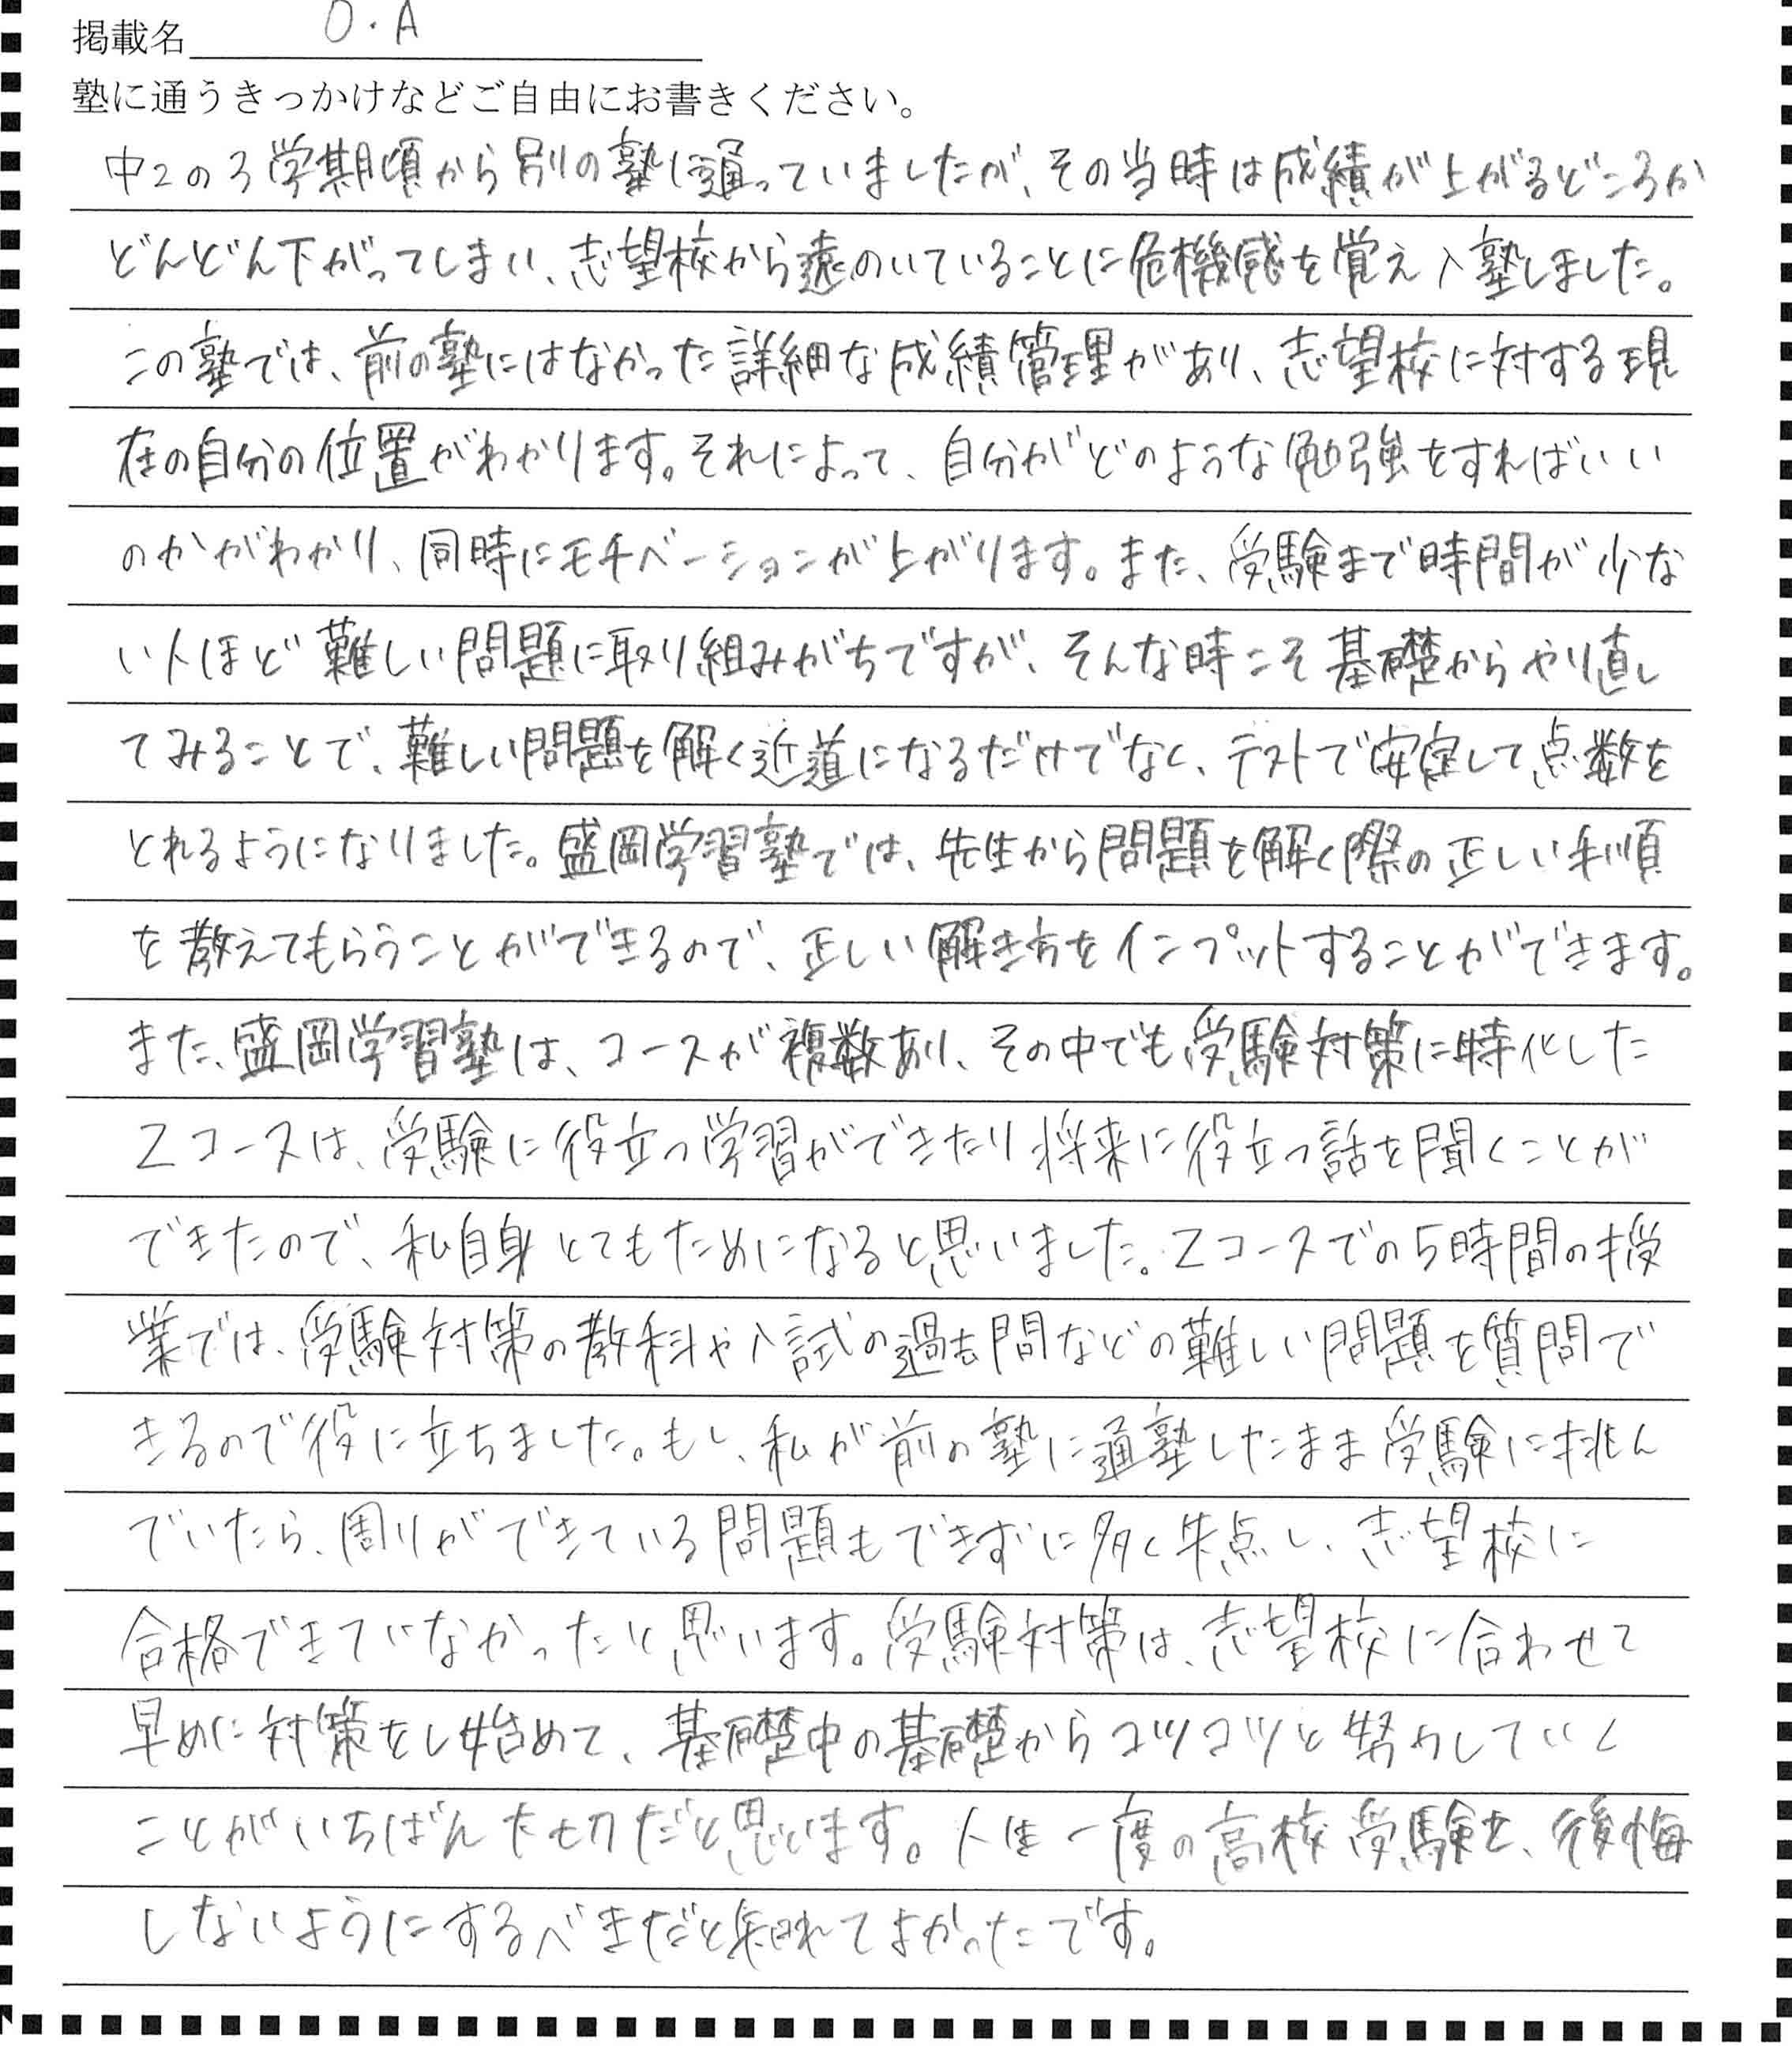 掲載名 O.A
塾に通うきっかけなどご自由にお書きください。
中2の3学期頃から別の塾に通っていましたが、その当時は成績が上がるどころか
どんどん下がってしまい、志望校から遠のいていることに危機感を覚え入塾しました。
この塾では、前の塾にはなかった詳細な成績管理があり、志望校に対する現
在の自分の位置がわかります。それによって、自分がどのような勉強をすればいい
のかがわかり、同時にモチベーションが上がります。また、受験まで時間が少な
い人ほど難しい問題に取り組みがちですが、そんな時こそ基礎からやり直し
てみることで、難しい問題を解く近道になるだけでなく、テストで安定して点数を
とれるようになりました。盛岡学習塾では、先生から問題を解く際の正しい手順
を教えてもらうことができるので、正しい解き方をインプットすることができます。
また、盛岡学習塾は、コースが複数あり、その中でも受験対策に特化した
Zコースは、受験に役立つ学習ができたり将来に役立つ話を聞くことが
できたので、私自身とてもためになると思いました。Zコースでの5時間の授
業では、受験対策の教科や入試の過去問などの難しい問題を質問で
きるので役に立ちました。もし、私が前の塾に通塾したまま受験に挑ん
でいたら、周りができている問題もできずに多く失点し、志望校に
合格できていなかったと思います。受験対策は、志望校に合わせて
早めに対策をし始めて、基礎中の基礎からコツコツと努力していく
ことがいちばん大切だと思います。人生一度の高校受験を、後悔
しないようにするべきだと知れてよかったです。